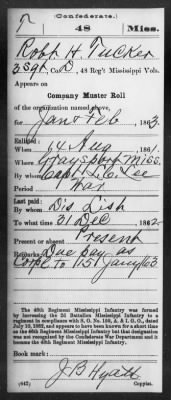 (Confederate.)
T 48 Miss.
Robt H. Tucker
3 Sgt, Co. D, 48 Reg't Mississippi Vols.
Appears on
Company Muster Roll
of the organization named above,
for Jan & Feb, 1863.
Enlisted:
When Aug, 1861.
Where Graysport Miss.
By whom Capt Lee
Period War
Last paid:
By whom
To what time 31 Dec, 1862.
Present or absent Present
Remarks: Due pay as
Corpl to 1st Jany/63
The 48th Regiment Mississippi Infantry was formed
by increasing the 2d Battalion Mississippi Infantry to a
regiment in compliance with S. O. No. 159, A. & I. G. O., dated
July 10, 1862, and appears to have been known for a short time
as the 66th Regiment Mississippi Infantry but that designation
was not recognized by the Confederate War Department and it
became the 48th Regiment Mississippi Infantry.
Book mark:
J B Hyatt
(642) Copyist.